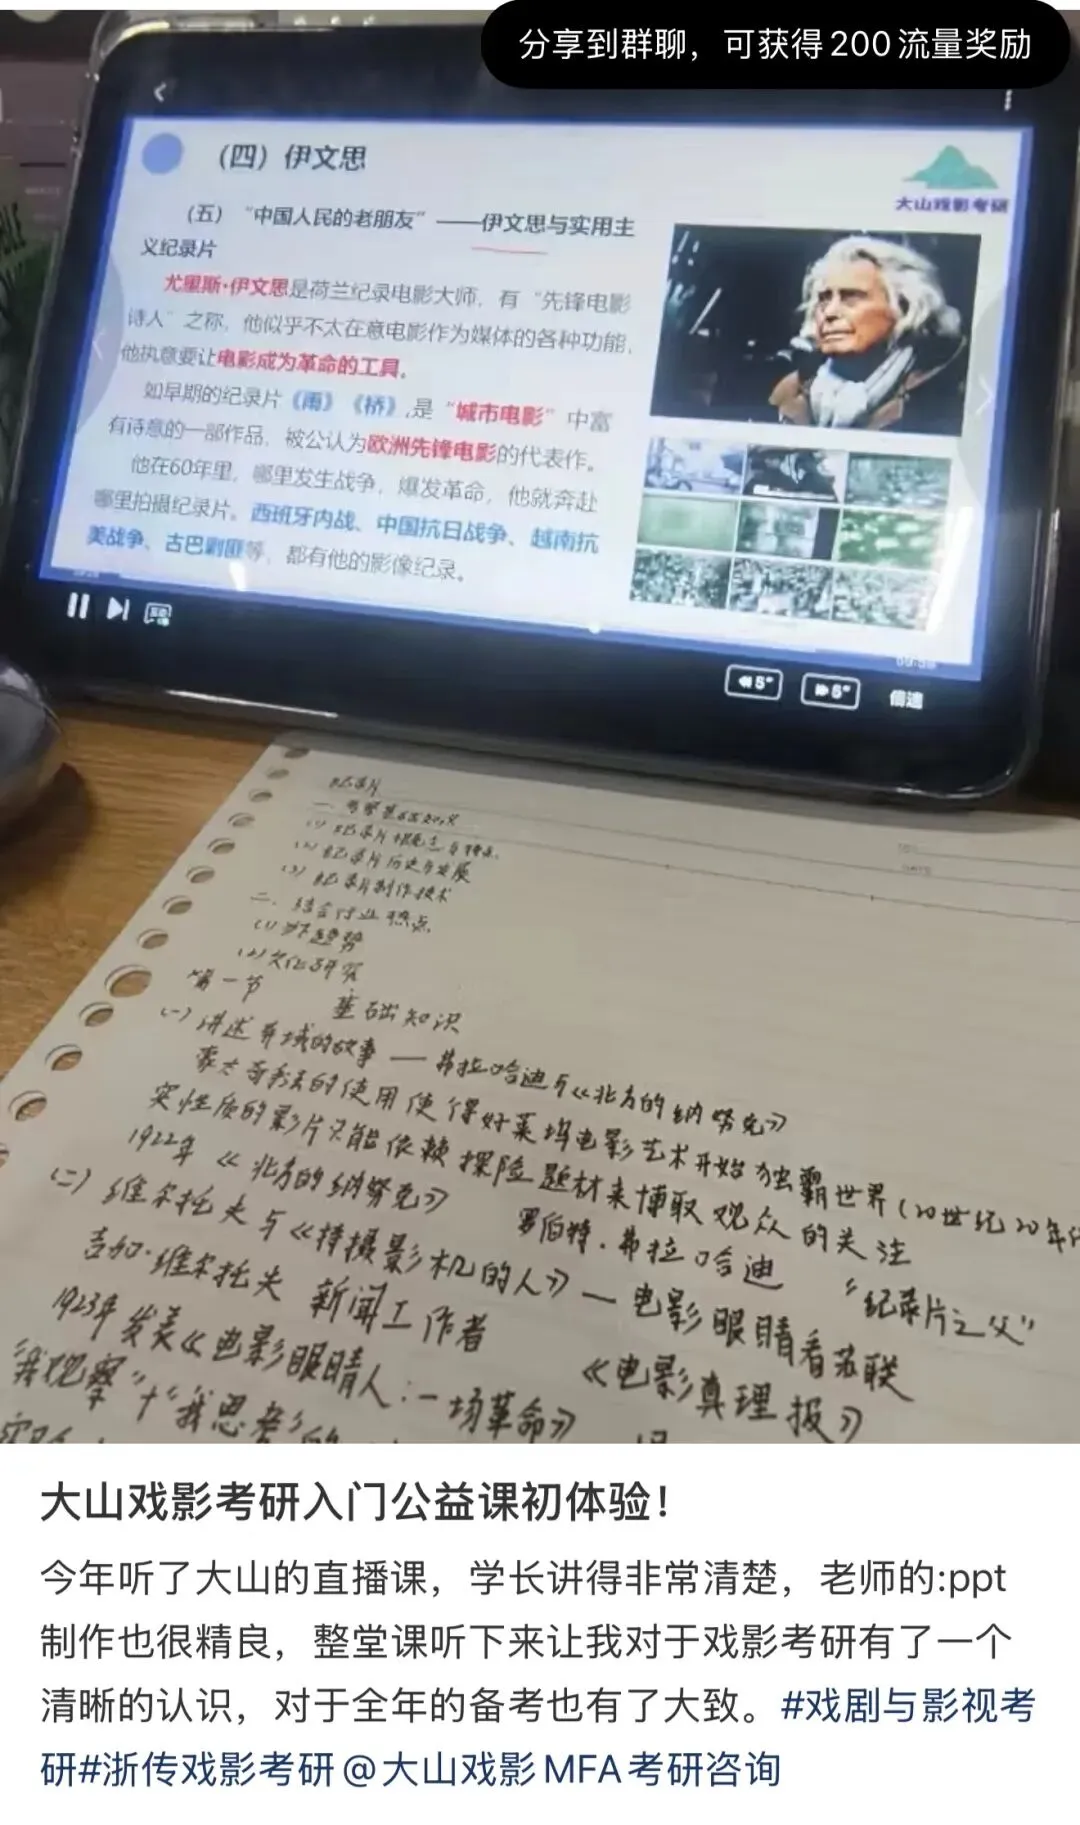 分享到群聊，可获得200流量奖励
（四）伊文思
大山戏影考研
（五）“中国人民的老朋友”——伊文思与实用主
义纪录片
尤里斯·伊文思是荷兰纪录电影大师，有“先锋电影
诗人”之称，他似乎不太在意电影作为媒体的各种功能，
他执意要让电影成为革命的工具。
如早期的纪录片《雨》《桥》,是“城市电影”中富
有诗意的一部作品，被公认为欧洲先锋电影的代表作。
他在60年里，哪里发生战争，爆发革命，他就奔赴
哪里拍摄纪录片。西班牙内战、中国抗日战争、越南抗
美战争、古巴剿匪等，都有他的影像纪录。
5"
5"
倍速
纪录片
(1) 纪录片概念与特点.
(2) 纪录片历史与发展
(3) 纪录片制作技术
二、结合行业热点
(2)文化研究
第一节 基础知识
(一)讲述异域的故事——弗拉哈迪与《北方的纳努克》
蒙太奇手法的使用使得好莱坞电影艺术开始独霸世界(20世纪20年代
实性质的影片只能依赖探险题材来博取观众的关注
1922年《北方的纳努克》 罗伯特.弗拉哈迪 “纪录片之父”
(二)维尔托夫与《持摄影机的人》—电影眼睛看苏联
吉加·维尔托夫 新闻工作者 《电影真理报》
1923年发表《电影眼睛人:一场革命》
“我观察”+“我思考”的
大山戏影考研入门公益课初体验！
今年听了大山的直播课，学长讲得非常清楚，老师的:ppt
制作也很精良，整堂课听下来让我对于戏影考研有了一个
清晰的认识，对于全年的备考也有了大致。#戏剧与影视考
研#浙传戏影考研@大山戏影MFA考研咨询